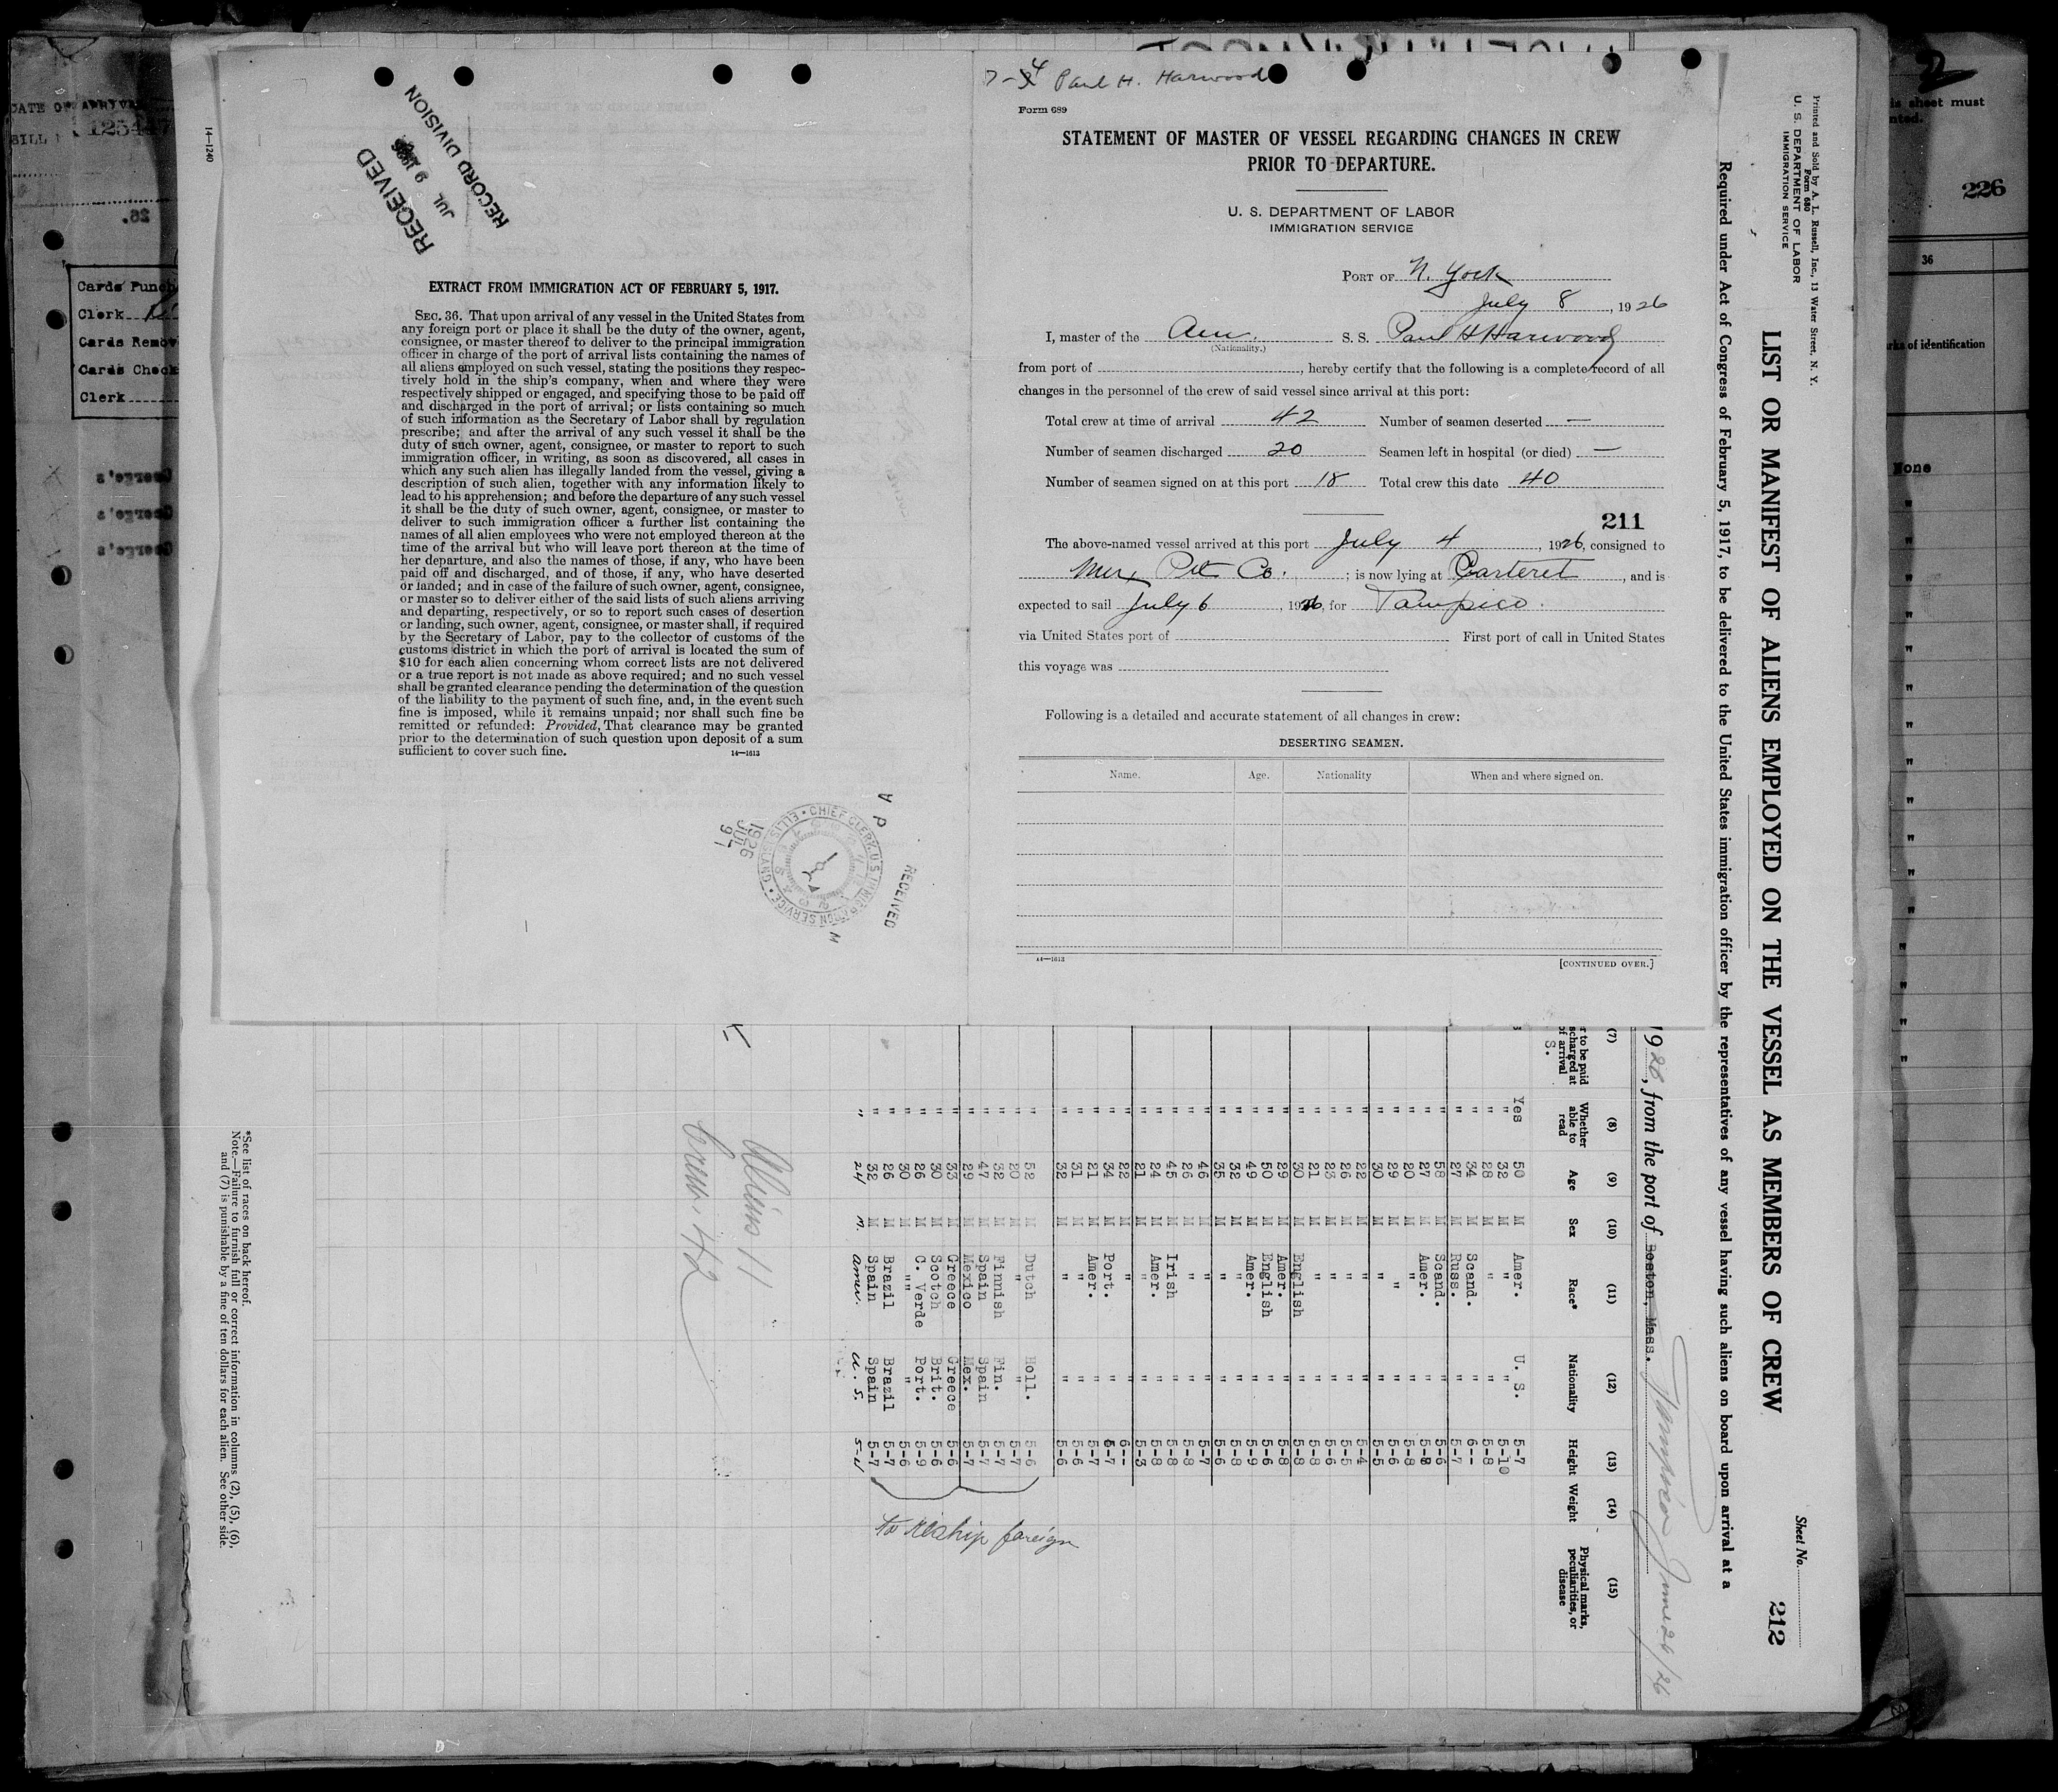 7-4 Paul H. Harwood
Form 689
STATEMENT OF MASTER OF VESSEL REGARDING CHANGES IN CREW
PRIOR TO DEPARTURE.
U. S. DEPARTMENT OF LABOR
IMMIGRATION SERVICE
PORT OF N. York
July 8, 1926
I, master of the Am. S. S. Paul H Harwood
(Nationality.)
from port of, hereby certify that the following is a complete record of all
changes in the personnel of the crew of said vessel since arrival at this port:
Total crew at time of arrival 42 Number of seamen deserted —
Number of seamen discharged 20 Seamen left in hospital (or died) —
Number of seamen signed on at this port 18 Total crew this date 40
211
The above-named vessel arrived at this port July 4, 1926, consigned to
Mex Pet Co.; is now lying at Carteret, and is
expected to sail July 6, 1926, for Tampico.
via United States port of First port of call in United States
this voyage was
Following is a detailed and accurate statement of all changes in crew:
DESERTING SEAMEN.
Name. Age. Nationality When and where signed on.
14—1613 [CONTINUED OVER.]
14—1240
RECEIVED
JUL 9 1926
RECORD DIVISION
EXTRACT FROM IMMIGRATION ACT OF FEBRUARY 5, 1917.
SEC. 36. That upon arrival of any vessel in the United States from
any foreign port or place it shall be the duty of the owner, agent,
consignee, or master thereof to deliver to the principal immigration
officer in charge of the port of arrival lists containing the names of
all aliens employed on such vessel, stating the positions they respec-
tively hold in the ship's company, when and where they were
respectively shipped or engaged, and specifying those to be paid off
and discharged in the port of arrival; or lists containing so much
of such information as the Secretary of Labor shall by regulation
prescribe; and after the arrival of any such vessel it shall be the
duty of such owner, agent, consignee, or master to report to such
immigration officer, in writing, as soon as discovered, all cases in
which any such alien has illegally landed from the vessel, giving a
description of such alien, together with any information likely to
lead to his apprehension; and before the departure of any such vessel
it shall be the duty of such owner, agent, consignee, or master to
deliver to such immigration officer a further list containing the
names of all alien employees who were not employed thereon at the
time of the arrival but who will leave port thereon at the time of
her departure, and also the names of those, if any, who have been
paid off and discharged, and of those, if any, who have deserted
or landed; and in case of the failure of such owner, agent, consignee,
or master so to deliver either of the said lists of such aliens arriving
and departing, respectively, or so to report such cases of desertion
or landing, such owner, agent, consignee, or master shall, if required
by the Secretary of Labor, pay to the collector of customs of the
customs district in which the port of arrival is located the sum of
$10 for each alien concerning whom correct lists are not delivered
or a true report is not made as above required; and no such vessel
shall be granted clearance pending the determination of the question
of the liability to the payment of such fine, and, in the event such
fine is imposed, while it remains unpaid; nor shall such fine be
remitted or refunded: Provided, That clearance may be granted
prior to the determination of such question upon deposit of a sum
sufficient to cover such fine.
14—1613
RECEIVED
1926 JUL 9
CHIEF CLERK, U.S. IMMIGRATION SERVICE • ELLIS ISLAND
Printed and Sold by A. L. Russell, Inc., 13 Water Street, N. Y.
Form 680
U. S. DEPARTMENT OF LABOR
IMMIGRATION SERVICE
Sheet No.
212
LIST OR MANIFEST OF ALIENS EMPLOYED ON THE VESSEL AS MEMBERS OF CREW
Required under Act of Congress of February 5, 1917, to be delivered to the United States immigration officer by the representatives of any vessel having such aliens on board upon arrival at a
1926, from the port of Boston, Mass. Tampico June 26/26
(7) (8) (9) (10) (11) (12) (13) (14) (15)
Whether able to read Age Sex Race* Nationality Height Weight Physical marks, peculiarities, or disease
Yes 50 M Amer. U. S. 5-7
" 32 M " " 5-10
" 28 M " " 5-8
" 34 M Scand. " 6--
" 27 M Russ. " 5-7
" 58 M Scand. " 5-6
" 27 M Amer. " 5-8
" 20 M " " 5-8
" 29 M " " 5-6
" 30 M " " 5-5
" 22 M " " 5-4
" 26 M " " 5-5
" 23 M " " 5-6
" 21 M " " 5-8
" 30 M English " 5-8
" 29 M Amer. " 5-8
" 50 M English " 5-6
" 49 M Amer. " 5-9
" 32 M " " 5-8
" 35 M " " 5-6
" 46 M " " 5-7
" 26 M " " 5-8
" 45 M Irish " 5-8
" 24 M Amer. " 5-8
" 21 M " " 5-3
" 22 M " " 6--
" 34 M Port. " 5-7
" 21 M Amer. " 5-7
" 31 M " " 5-6
" 32 M " " 5-6
" 52 M Dutch Holl. 5-6
" 20 M " " 5-7
" 32 M Finnish Fin. 5-7
" 47 M Spain Spain 5-7
" 29 M Mexico Mex. 5-7
" 33 M Greece Greece 5-6
" 30 M Scotch Brit. 5-6
" 26 M C. Verde Port. 5-9
" 30 M " " 5-6
" 26 M Brazil Brazil 5-7
" 32 M Spain Spain 5-7
" 24 M. Amer. U. S.
to reship foreign
Aliens 11
Crew, 42
*See list of races on back hereof.
Note.—Failure to furnish full or correct information in columns (2), (5), (6),
and (7) is punishable by a fine of ten dollars for each alien. See other side.
Cards Punch
Clerk
Cards Remov
Cards Check
Clerk
226
36
None